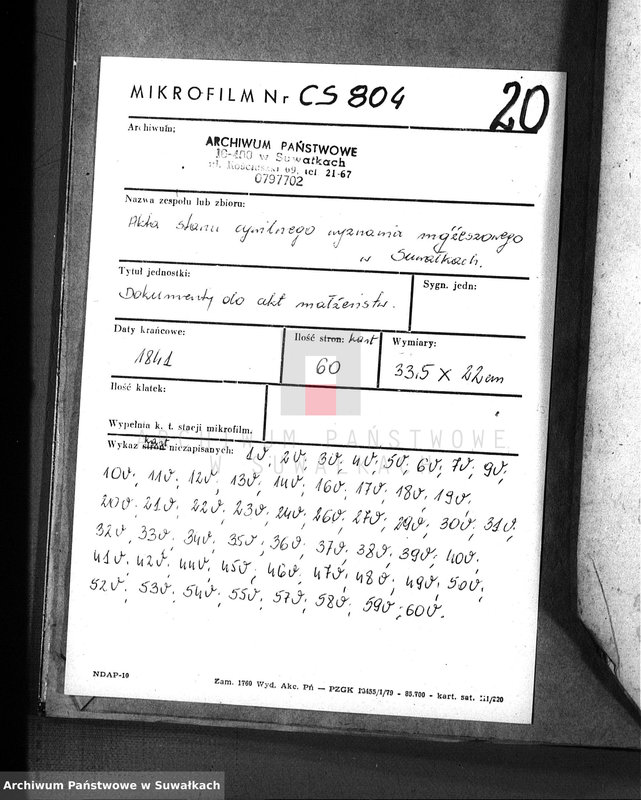 MIKROFILM Nr CS 804
20
Archiwum:
ARCHIWUM PAŃSTWOWE
16-400 w Suwałkach
ul. Kościuszki 69, tel 21-67
0797702
Nazwa zespołu lub zbioru:
Akta stanu cywilnego wyznania mojżeszowego
w Suwałkach.
Tytuł jednostki:
Dokumenty do akt małżeństw.
Sygn. jedn:
Daty krańcowe:
1841
Ilość stron: kart
60
Wymiary:
33,5 x 22 cm
Ilość klatek:
Wypełnia k. t. stacji mikrofilm.
ARCHIWUM PAŃSTWOWE
W SUWAŁKACH
kart
Wykaz stron niezapisanych: 1v, 2v, 3v, 4v, 5v, 6v, 7v, 9v,
10v, 11v, 12v, 13v, 14v, 16v, 17v, 18v, 19v,
20v, 21v, 22v, 23v, 24v, 26v, 27v, 29v, 30v, 31v,
32v, 33v, 34v, 35v, 36v, 37v, 38v, 39v, 40v,
41v, 42v, 44v, 45v, 46v, 47v, 48v, 49v, 50v,
52v, 53v, 54v, 55v, 57v, 58v, 59v, 60v.
NDAP-10
Zam. 1760 Wyd. Akc. Pń — PZGK
kart. sat. III/220
Archiwum Państwowe w Suwałkach